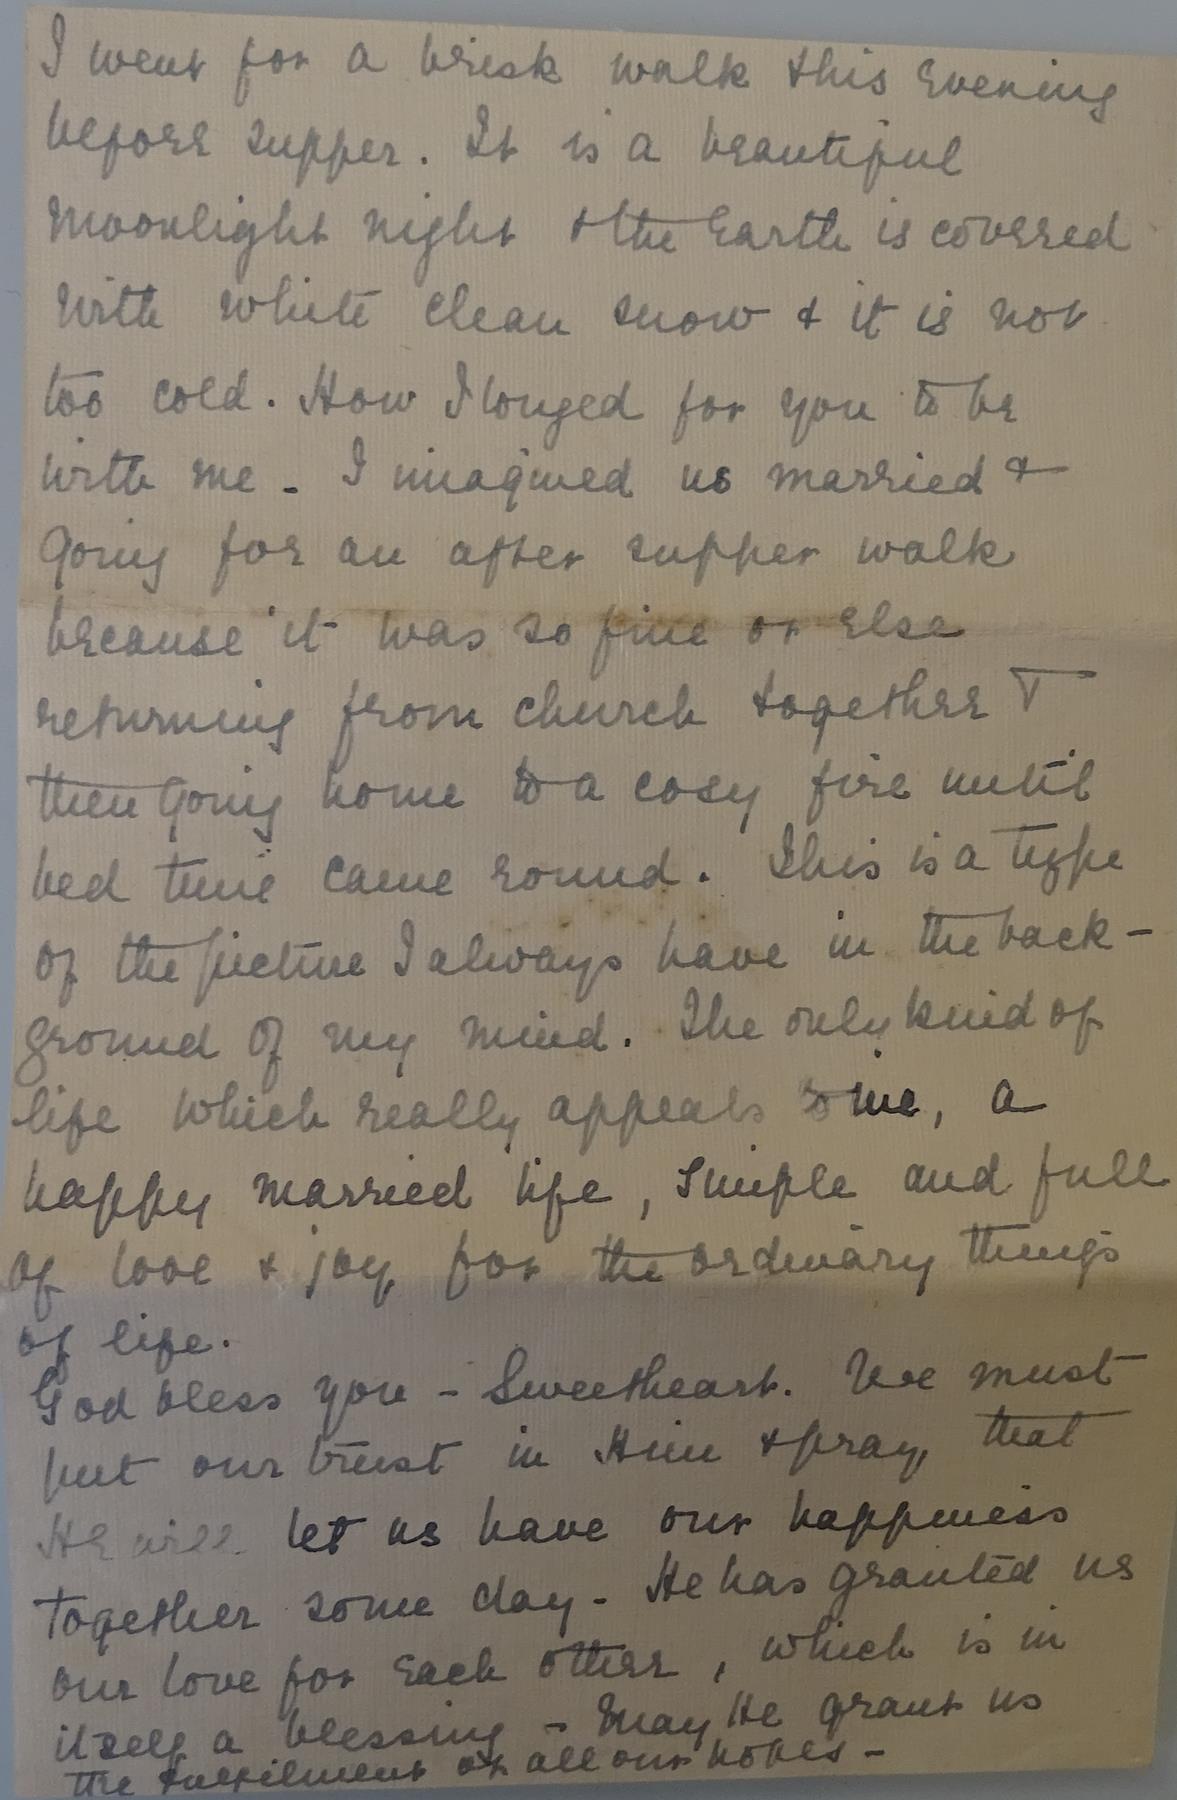 I went for a brisk walk this evening
before supper. It is a beautiful
moonlight night & the Earth is covered
with white clean snow & it is not
too cold. How I longed for you to be
with me - I imagined us married &
going for an after supper walk
because it was so fine or else
returning from church together &
then going home to a cosy fire until
bed time came round. This is a type
of the picture I always have in the back-
ground of my mind. The only kind of
life which really appeals to me, a
happy married life, simple and full
of love & joy for the ordinary things
of life.
God bless you - Sweetheart. We must
put our trust in Him & pray that
He will let us have our happiness
together some day - He has granted us
our love for each other, which is in
itself a blessing - May He grant us
the fulfilment of all our hopes -